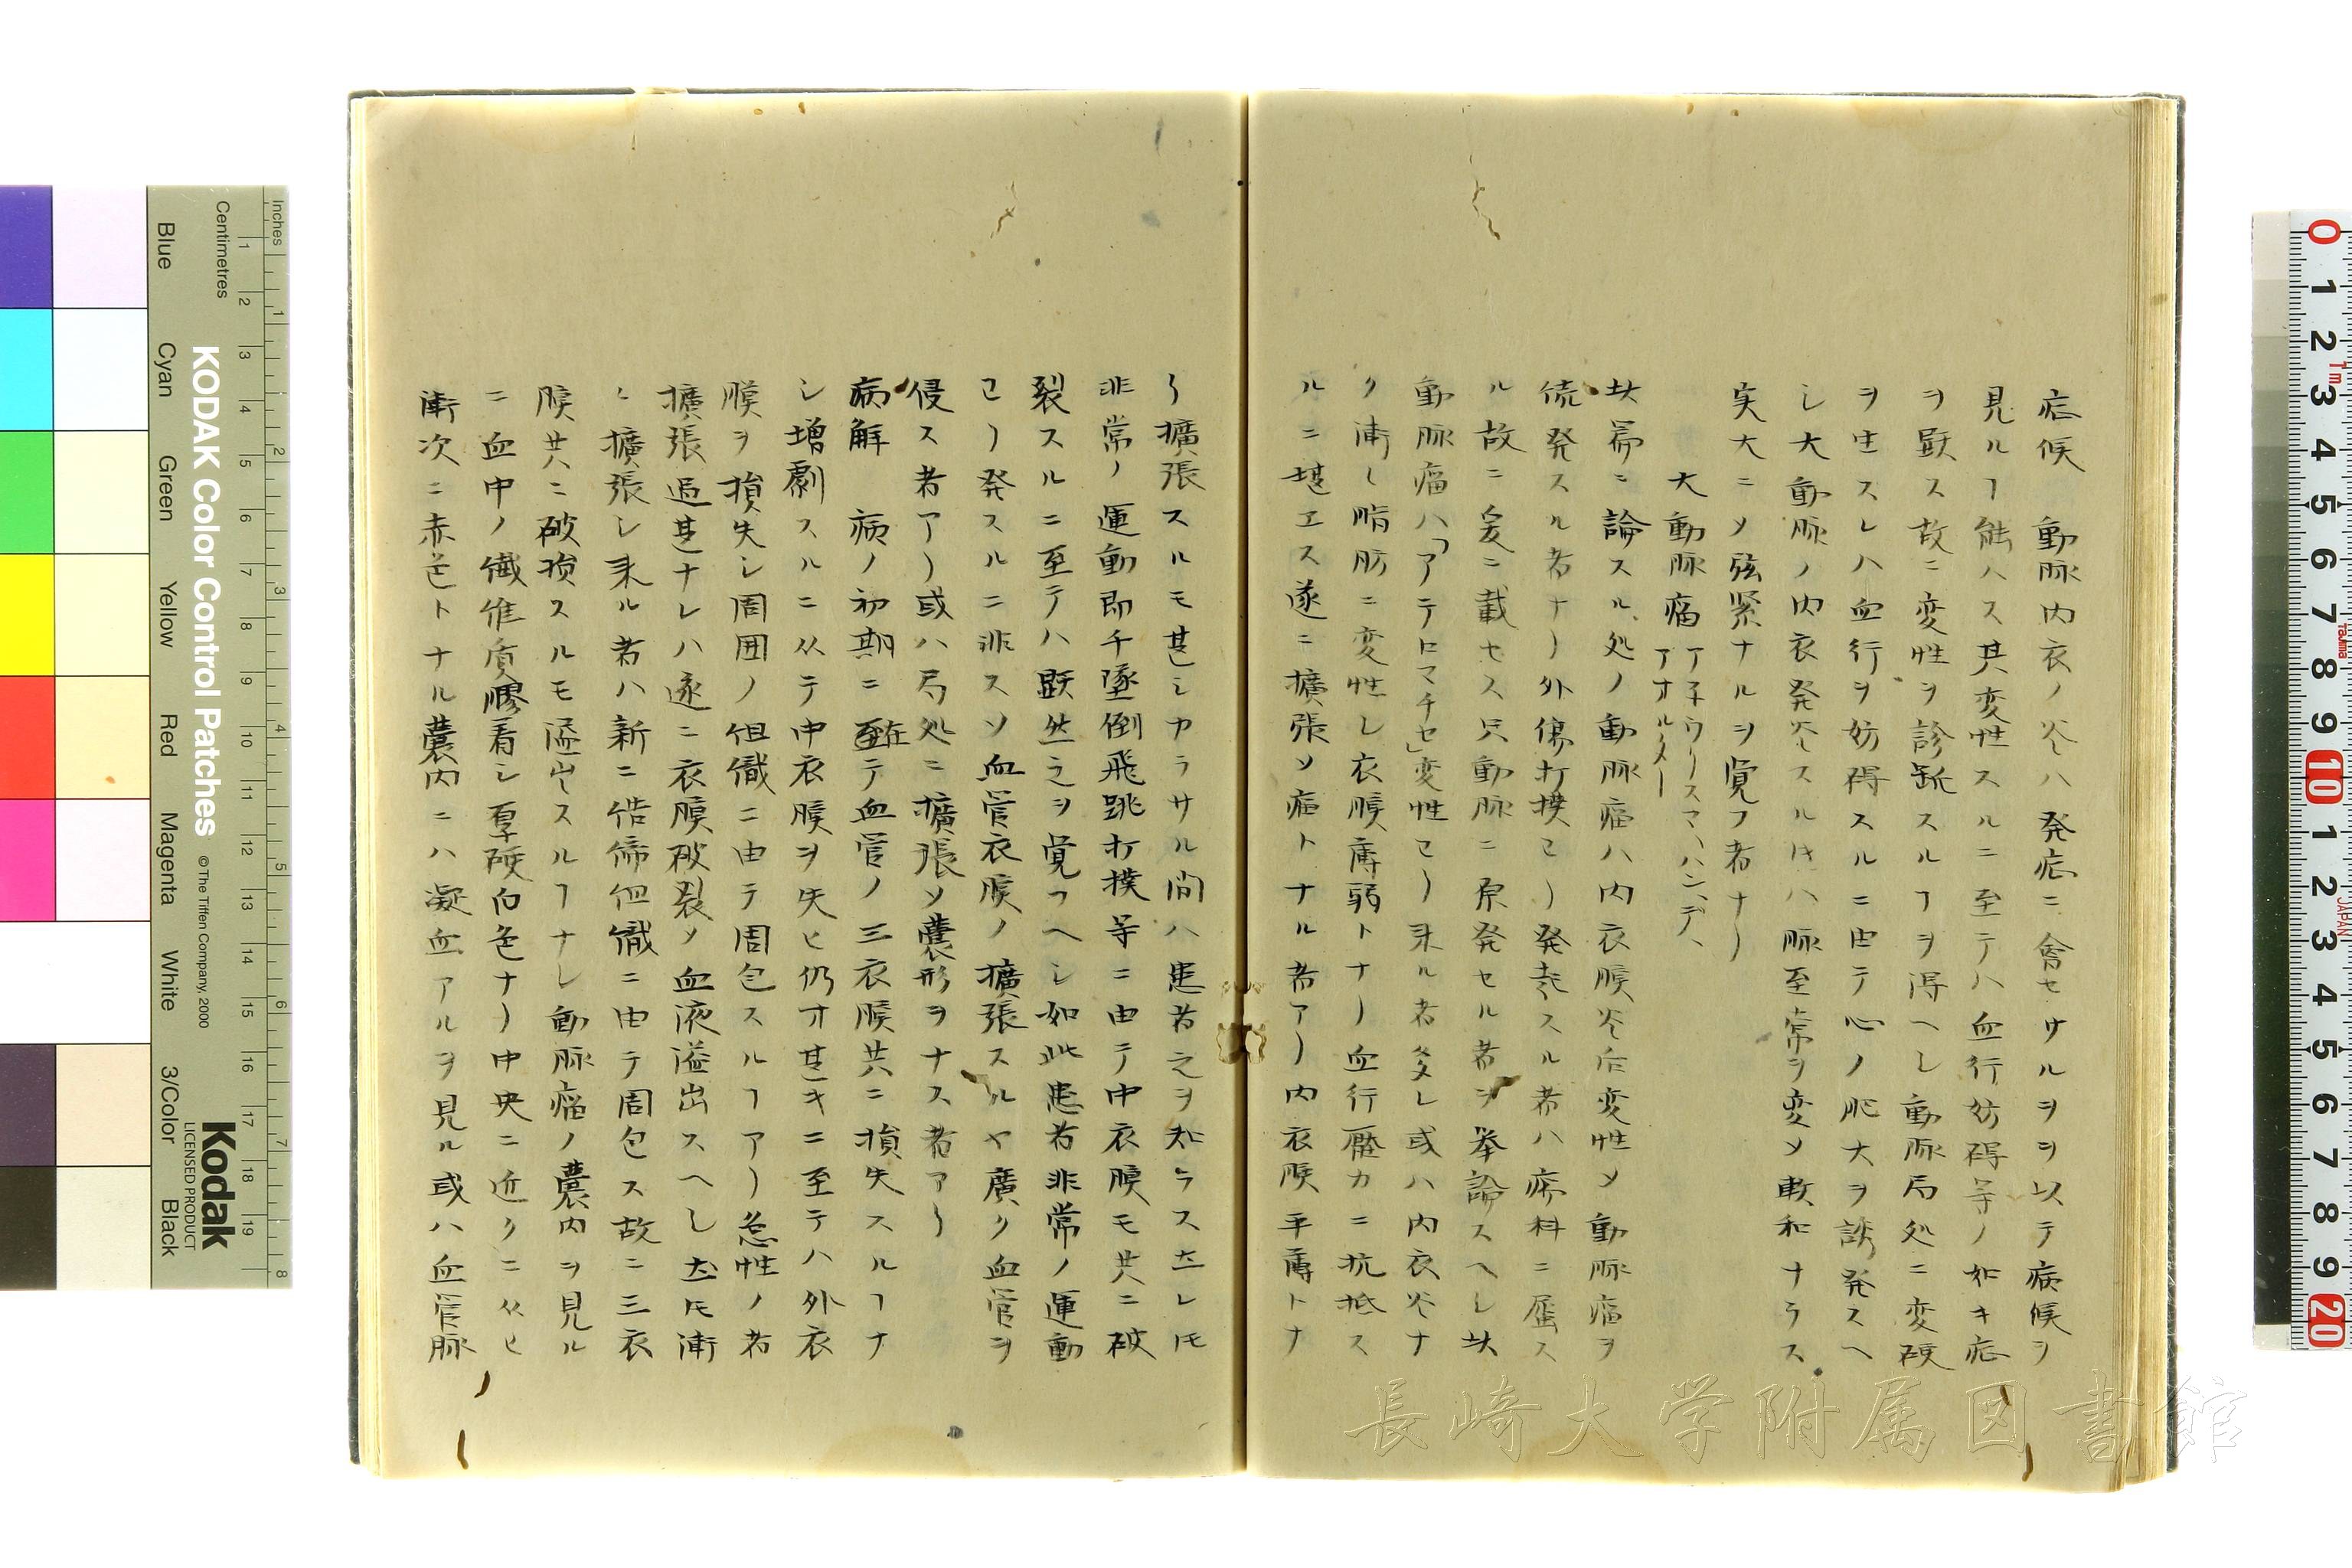 症候 動脉内衣ノ炎ハ発症ニ會セサルヲヲ以テ病候ヲ
見ルヿ能ハス其変性スルニ至テハ血行妨碍等ノ如キ症
ヲ顕ス故ニ変性ヲ診断スルヿヲ得ヘシ動脉局処ニ変硬
ヲ生スレハ血行ヲ妨碍スルニ由テ心ノ肥大ヲ誘発スヘ
シ大動脉ノ内衣発炎スル片ハ脉至常ヲ変ソ軟和ナラス
実大ニソ弦緊ナルヲ覚フ者ナリ
大動脉瘤 アネウリースマ、ハン、デ、
アオルター
此篇ニ論スル処ノ動脉瘤ハ内衣膜炎后変性ソ動脉瘤ヲ
続発スル者ナリ外傷打撲ヨリ発起スル者ハ瘍科ニ属ス
ル故ニ爰ニ載セス只動脉ニ原発セル者ヲ挙論スヘシ此
動脉瘤ハ「アテロマチセ」変性ヨリ来ル者多シ或ハ内衣炎ナ
ク漸シ脂肪ニ変性シ衣膜薄弱トナリ血行壓力ニ抗抵ス
ルニ堪ヱス遂ニ擴張ソ瘤トナル者アリ内衣膜平薄トナ
リ擴張スルモ甚シカラサル間ハ患者之ヲ知ラス左レ𪜈
非常ノ運動即チ墜倒飛跳打撲等ニ由テ中衣膜モ共ニ破
裂スルニ至テハ顕然之ヲ覚フヘシ如此患者非常ノ運動
ヨリ発スルニ非スソ血管衣膜ノ擴張スルヤ廣ク血管ヲ
侵ス者アリ或ハ局処ニ擴張ソ嚢形ヲナス者アリ
病解 病ノ初期ニ在テ血管ノ三衣膜共ニ損失スルヿナ
シ増劇スルニ从テ中衣膜ヲ失ヒ仍ホ甚キニ至テハ外衣
膜ヲ損失シ周囲ノ組織ニ由テ周包スルヿアリ急性ノ者
擴張過甚ナレハ遂ニ衣膜破裂ソ血液溢出スヘシ左𪜈漸
々擴張シ来ル者ハ新ニ結締組織ニ由テ周包ス故ニ三衣
膜共ニ破損スルモ溢出スルヿナシ動脉瘤ノ嚢内ヲ見ル
ニ血中ノ繊維質膠着シ厚硬白色ナリ中央ニ近クニ从ヒ
漸次ニ赤色トナル嚢内ニハ凝血アルヲ見ル或ハ血管脉
Inches
Centimetres
KODAK Color Control Patches
© The Tiffen Company, 2000
Kodak
LICENSED PRODUCT
Blue
Cyan
Green
Yellow
Red
Magenta
White
3/Color
Black
長崎大学附属図書館